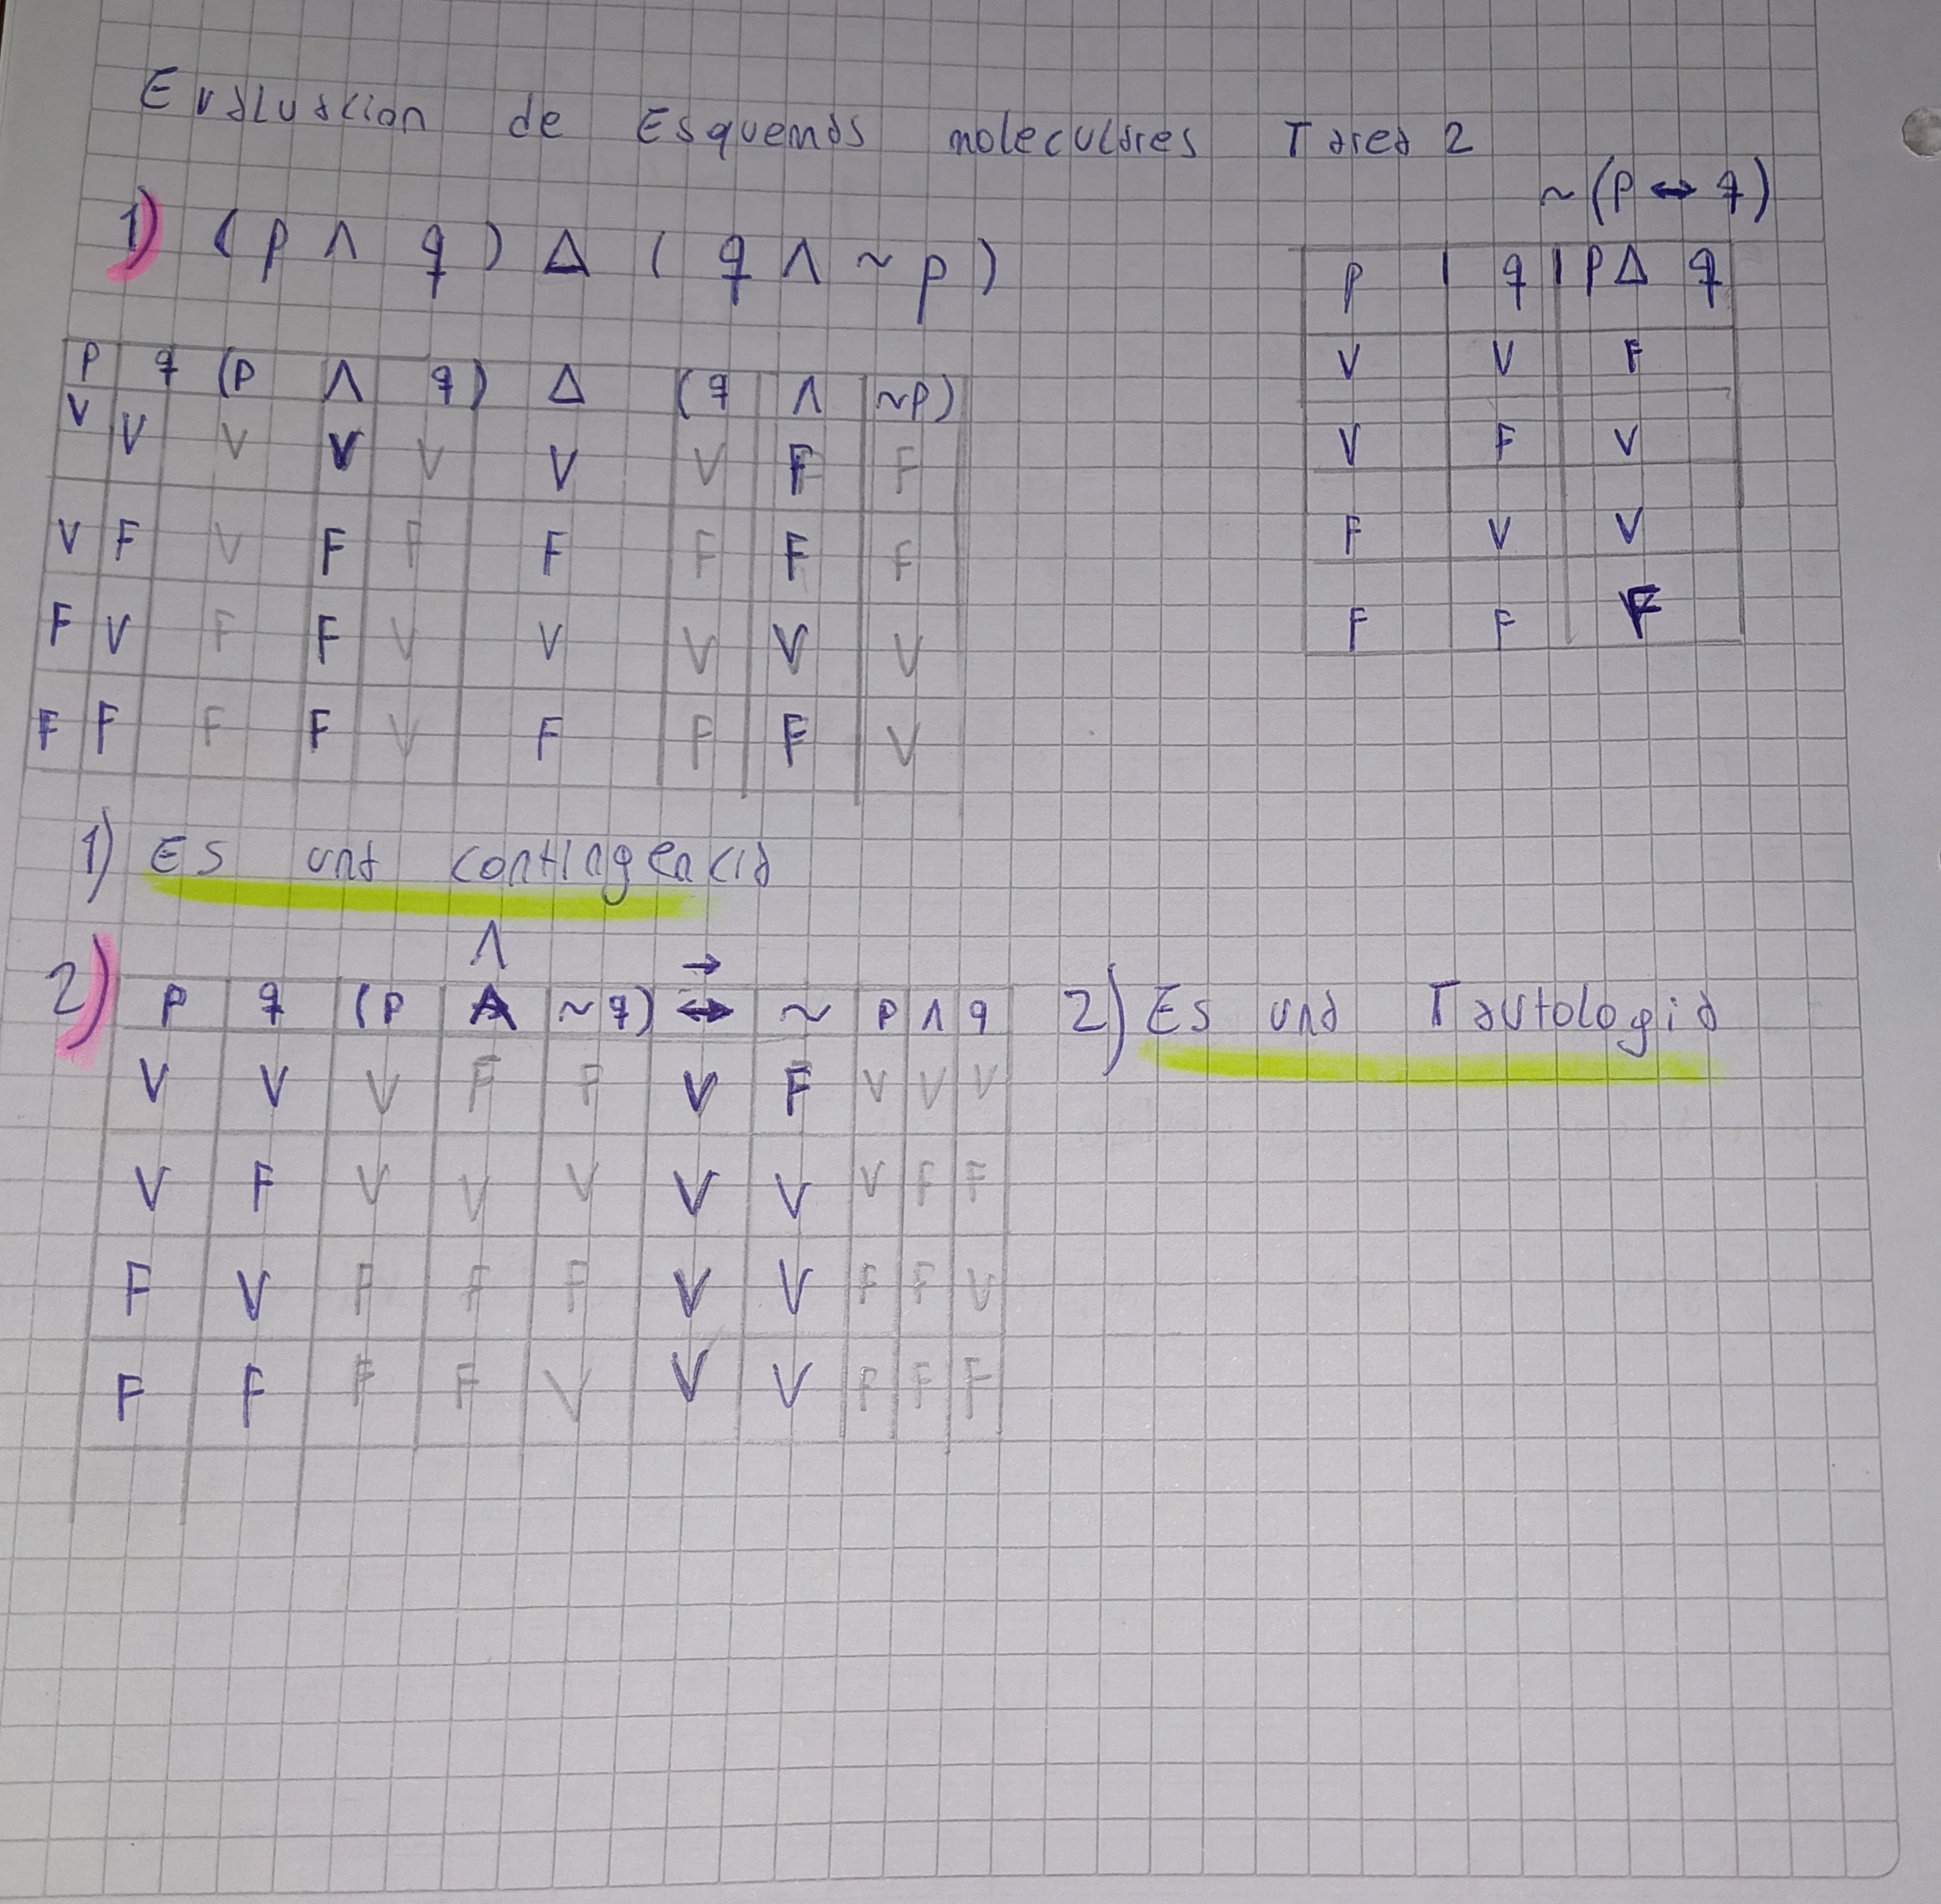 Evaluacion de Esquemas moleculares Tarea 2
~(p ↔ q)
1) (p ∧ q) Δ (q ∧ ~p)
p | q | p Δ q
V V F
V F V
F V V
F F F
p q (p ∧ q) Δ (q ∧ ~p)
V V V V V V V F F
V F V F F F F F F
F V F F V V V V V
F F F F V F F F V
1) Es una contingencia
∧ →
2) p q (p ∧ ~q) ↔ ~ p ∧ q
V V V F F V F V V V
V F V V V V V V F F
F V F F F V V F F V
F F F F V V V F F F
2) Es una Tautologia